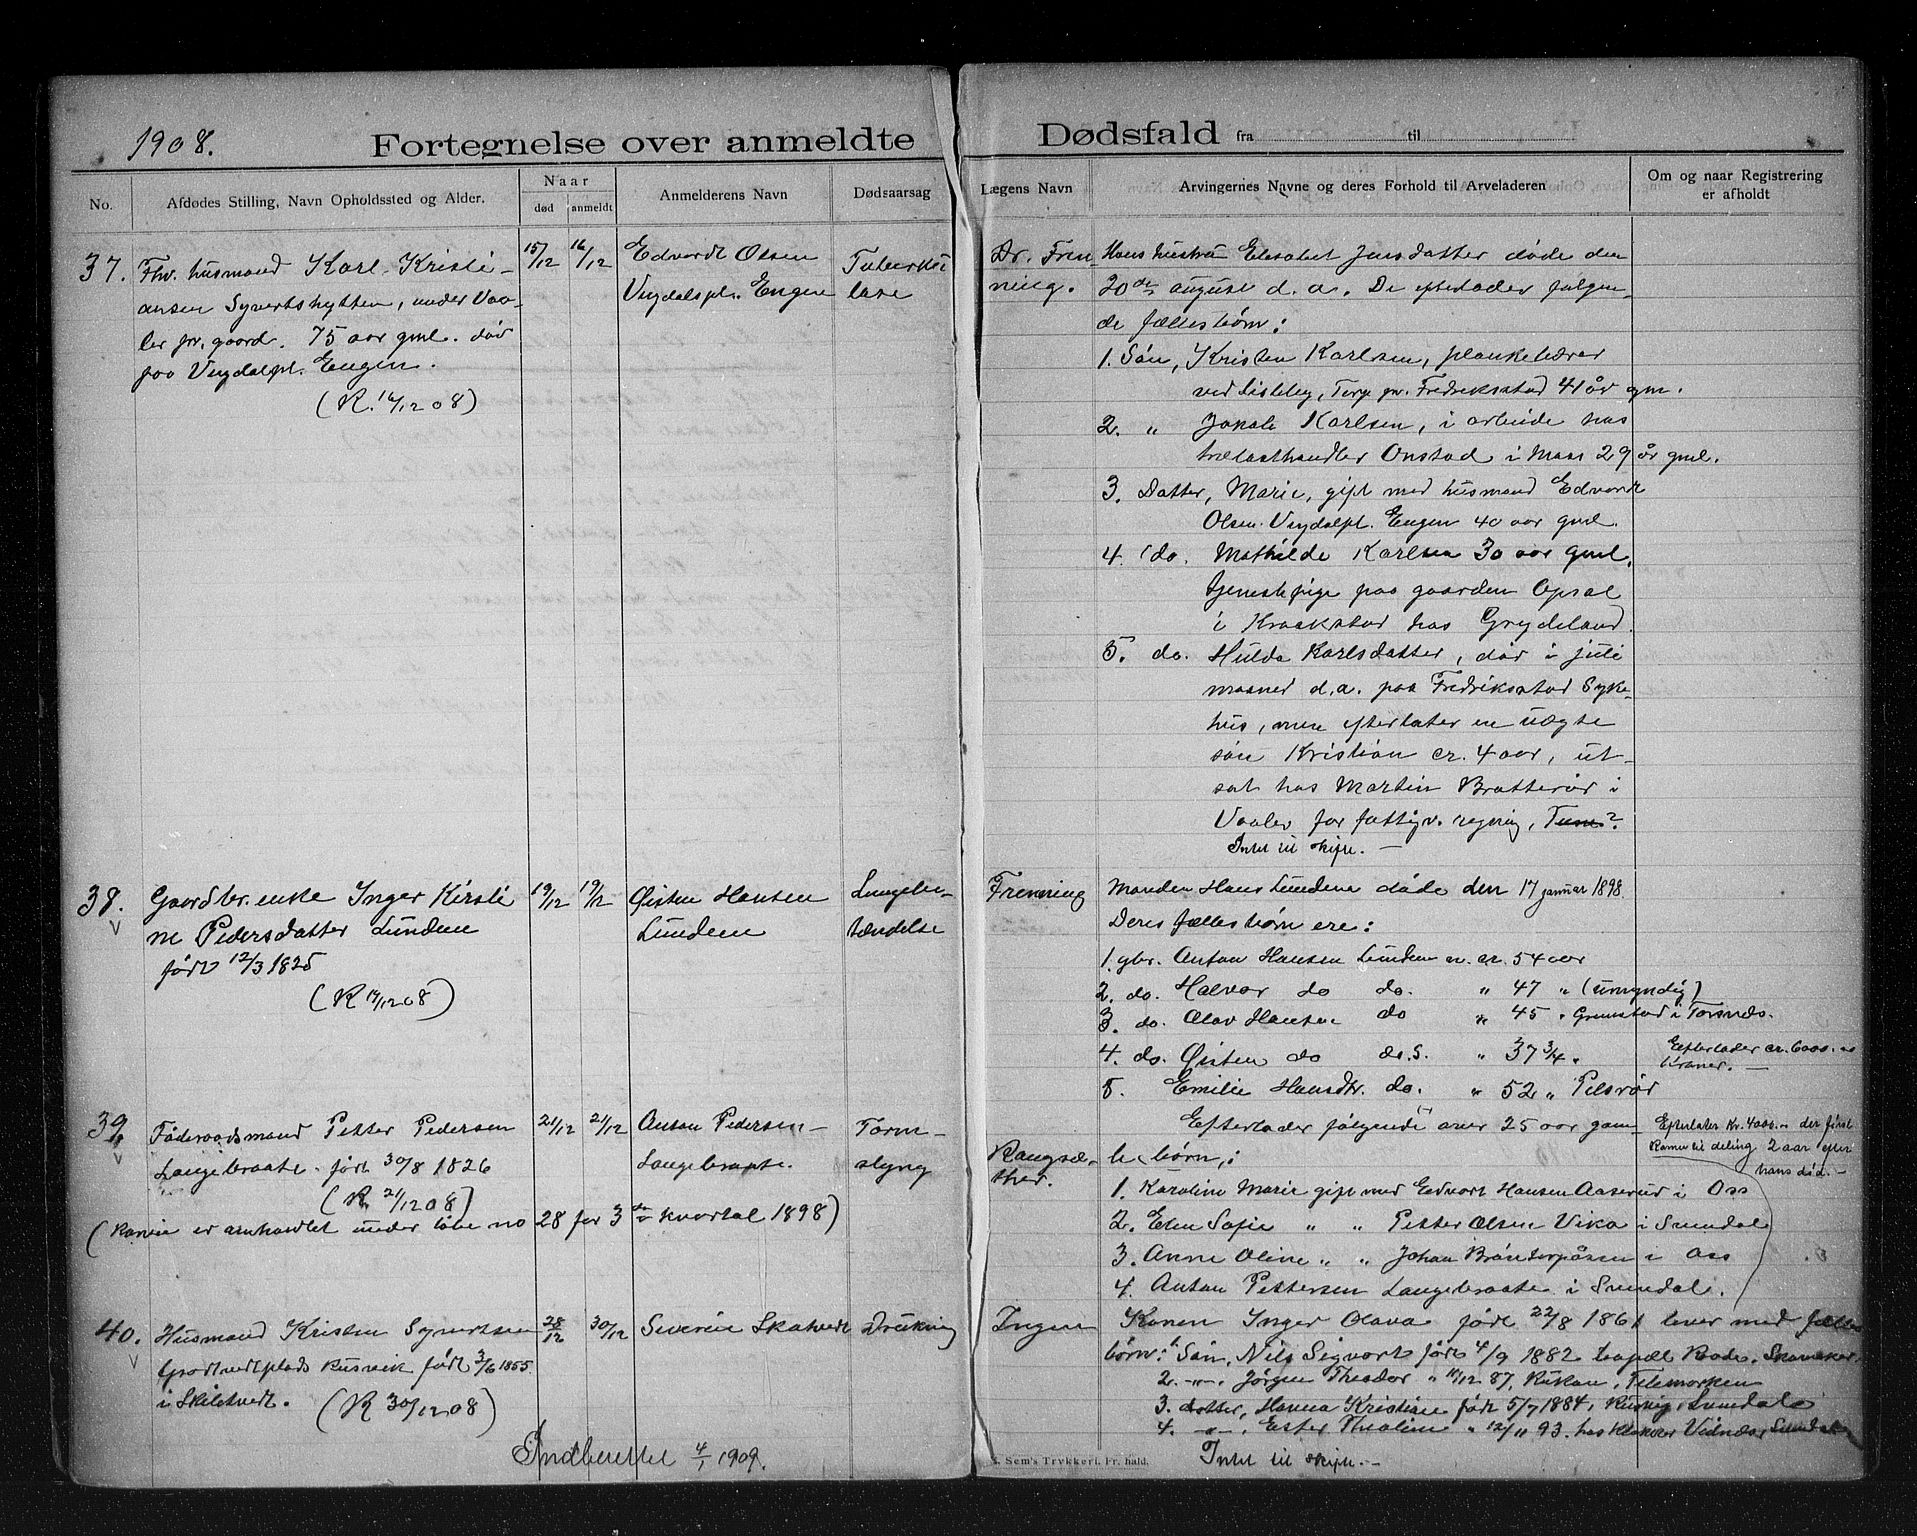 1908.
Fortegnelse over anmeldte Dødsfald fra til
No.
Afdødes Stilling, Navn Opholdssted og Alder.
Naar
død anmeldt
Anmelderens Navn
Dødsaarsag
Lægens Navn
Arvingernes Navne og deres Forhold til Arveladeren
Om og naar Registrering
er afholdt
37. Fhv. husmand Karl Kristi-
ansen Syvertshytten, under Vaa-
ler pr. gaard. 75 aar gml. död
paa Engen.
(R. 16/12 08)
15/12 16/12
Edvardt Olsen
Engen
Tuberku
lose
Dr. Fren
ning.
Hans hustru Elisabet Jensdatter döde den
20de august d.a. De efterlader følgen-
de fællesbörn:
1. Sön, Kristen Karlsen, plankebærer
ved Lisleby, Torp pr. Fredriksstad 41 år gm.
2. " Jakob Karlsen, i arbeide hos
trælasthandler Onstad i Moss 29 år gml.
3. Datter, Marie, gift med husmand Edvardt
Olsen Engen 40 aar gml.
4. do. Mathilde Karlsen 30 aar gml.
tjenestepige paa gaarden Opsal
i Kraakstad hos Grydeland.
5. do. Hulda Karlsdatter, död i juli
maaned d.a. paa Fredriksstad Syke-
hus, men efterlater en uægte
sön Kristian cr. 4 aar, ut-
sat hos Martin Bratteröd i
Vaaler for fattigv. regning, Tune?
Intet til skifte. —
38. Gaardbr. enke Inger Kirsti
ne Pedersdatter Lunden
födt 12/3 1825
(R 19/12 08)
19/12 19/12
Øisten Hansen
Lunden
Lungebe-
tændelse
Frenning
Manden Hans Lunden döde den 17 januar 1898.
Deres fællesbörn ere:
1. gbr. Anton Hansen Lunden cr. 54 aar
2. do. Halvor do do. " 47 " (umyndig)
3. do. Olav Hansen do " 45 " Grimstad i Torsnes.
4. do. Øisten do do.S. " 37 3/4 "
5. Emilie Hansdtr. do. " 52 "
Efterlader cr. 6000.
Kroner. —
39. Föderaadsmand Petter Pedersen
Langebraate. födt 30/8 1826
(R 21/12 08)
(Konen er anmeldt under löbe no 28 for 3de kvartal 1898)
21/12 21/12
Anton Pedersen
Langebraate.
Tarm-
slyng
Rangsæ-
ther.
Efterlader følgende over 25 aar gam-
le börn:
1. Karoline Marie gift med Edvart Hansen Aaserud i Oss
2. Elen Sofie " " Petter Olsen Vika i Svindal
3. Anne Oline " " Johan i Oss
4. Anton Pettersen Langebraate i Svindal.
Efterlater Kr. 4000.- der först
kommer til deling 2 aar efter
hans död. —
40. Husmand Kristen Syvertsen
plads Rusvik födt 3/6 1855
i Skiptvedt.
(R 30/12 08)
28/12 30/12
Severin
Drukning
Ingen
Konen Inger Olava födt 22/8 1861 lever med fælles
börn: 1 Sön, Nils Sigvart födt 4/9 1882
2. —"—. Jörgen Theodor " 10/12 87, Rjukan, Telemarken
3. datter, Hanna Kristine födt 5/7 1884, Rusvig, Svindal
4. —"—, Ester Thealine " 12/11 93. hos Klokker
Intet til skifte. —
Indberettet 4/1 1909.
Sem's Trykkeri. Fr. hald.